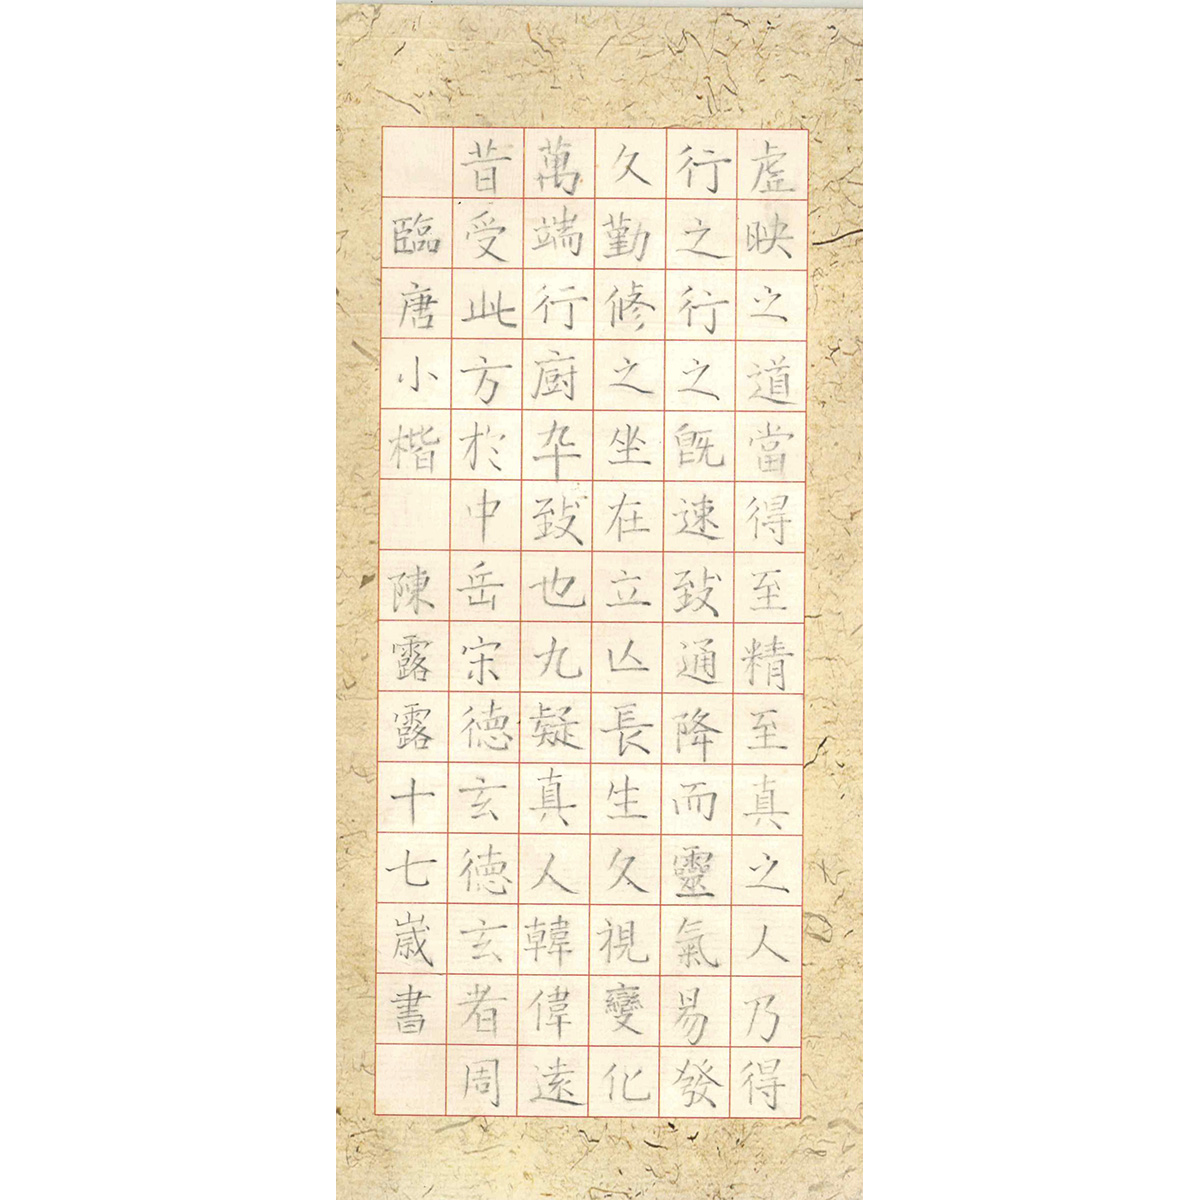 虛映之道當得至精至真之人乃得
行之行之既速致通降而靈氣易發
久勤修之坐在立亾長生久視變化
萬端行廚卒致也九疑真人韓偉遠
昔受此方於中岳宋德玄德玄者周
臨唐小楷 陳露露十七歲書